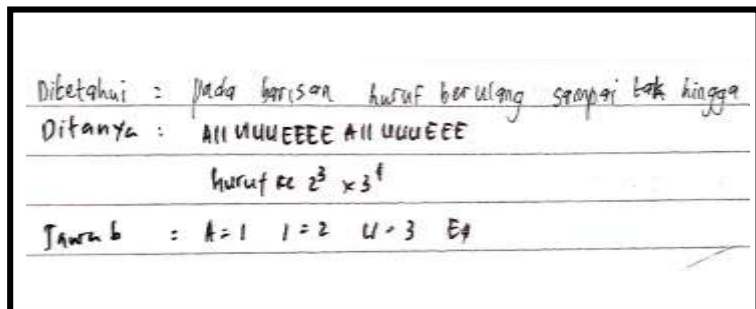 Diketahui : pada barisan huruf berulang sampai tak hingga
Ditanya : AIIUUUEEEEAIIUUUEEE
huruf ke 2³ × 3⁴
Jawab : A=1 I=2 U=3 E4